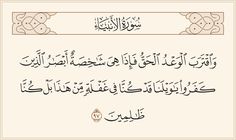 سُورَةُ الأَنبِيَاءِ
وَٱقْتَرَبَ ٱلْوَعْدُ ٱلْحَقُّ فَإِذَا هِىَ شَٰخِصَةٌ أَبْصَٰرُ ٱلَّذِينَ
كَفَرُوا۟ يَٰوَيْلَنَا قَدْ كُنَّا فِى غَفْلَةٍ مِّنْ هَٰذَا بَلْ كُنَّا
ظَٰلِمِينَ ٩٧